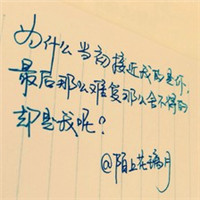 为什么当初接近我的是你，
最后那么难复那么舍不得的
却是我呢？
@陌上花璃月